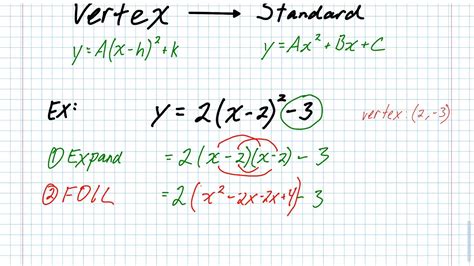 Vertex → Standard
y = A(x-h)² + k y = Ax² + Bx + C
Ex: y = 2(x-2)² - 3 vertex: (2, -3)
① Expand = 2(x-2)(x-2) - 3
② FOIL = 2(x² - 2x - 2x + 4) - 3